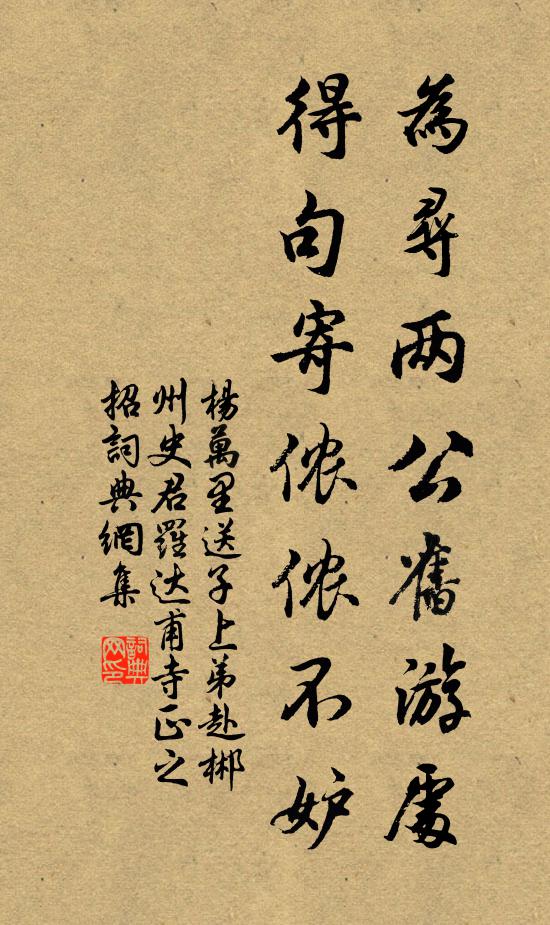 為尋两公舊游處
得句寄侬侬不妒
楊萬里送子上弟赴郴
州史君羅达甫寺正之
招詞典網集
詞典
网印